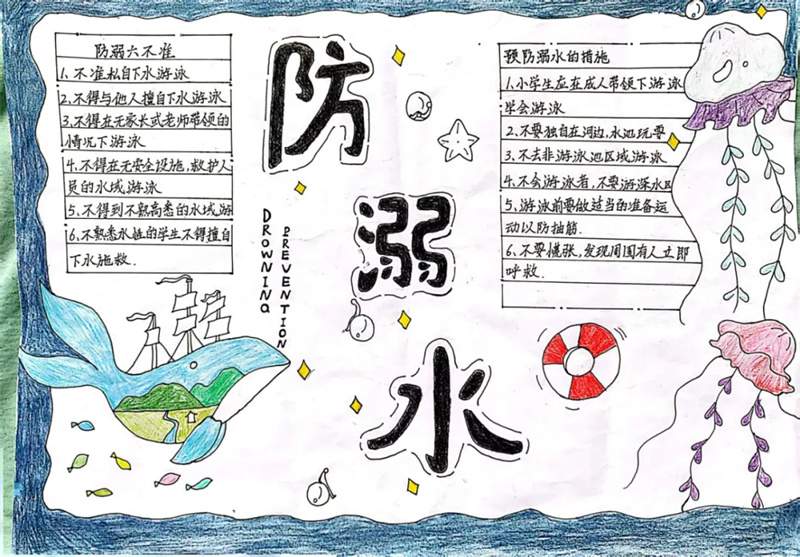 防弱六不准
1、不准私自下水游泳
2、不得与他人擅自下水游泳
3、不得在无家长或老师带领的
情况下游泳
4、不得在无安全设施、救护人
员的水域游泳
5、不得到不熟悉的水域游
6、不熟悉水性的学生不得擅自
下水施救.
防
溺
水
DROWNING
PREVENTION
预防溺水的措施
1、小学生应在成人带领下游泳
学会游泳
2、不要独自在河边、水池玩耍
3、不去非游泳池区域游泳
4、不会游泳者,不要游深水区
5、游泳前要做适当的准备运
动以防抽筋.
6、不要慌张,发现周围有人立即
呼救.